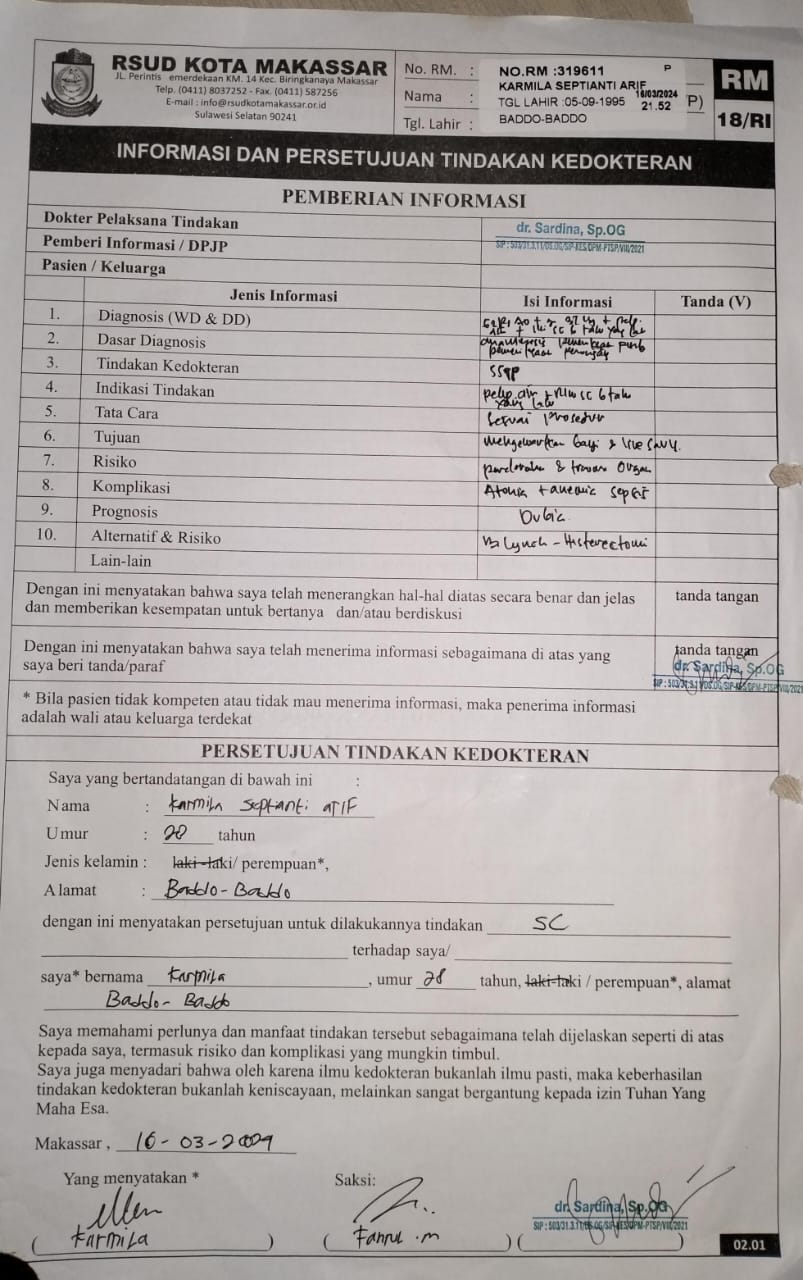 RSUD KOTA MAKASSAR
JL. Perintis emerdekaan KM. 14 Kec. Biringkanaya Makassar
Telp. (0411) 8037252 - Fax. (0411) 587256
E-mail : info@rsudkotamakassar.or.id
Sulawesi Selatan 90241
No. RM. :
Nama :
Tgl. Lahir :
NO.RM :319611 P
KARMILA SEPTIANTI ARIF
TGL LAHIR :05-09-1995
16/03/2024
21.52
BADDO-BADDO
P)
RM
18/RI
INFORMASI DAN PERSETUJUAN TINDAKAN KEDOKTERAN
PEMBERIAN INFORMASI
Dokter Pelaksana Tindakan
Pemberi Informasi / DPJP
dr. Sardina, Sp.OG
SIP : 503/31.3.11/DS.OG/SIP-KES/DPM-PTSP/VIII/2021
Pasien / Keluarga
Jenis Informasi Isi Informasi Tanda (V)
1. Diagnosis (WD & DD)
2. Dasar Diagnosis
3. Tindakan Kedokteran SSTP
4. Indikasi Tindakan
5. Tata Cara Sesuai prosedur
6. Tujuan mengeluarkan bayi &
7. Risiko perdarahan & trauma organ
8. Komplikasi Atonia + anemia sepsis
9. Prognosis Dubia
10. Alternatif & Risiko B Lynch - Histerectomi
Lain-lain
Dengan ini menyatakan bahwa saya telah menerangkan hal-hal diatas secara benar dan jelas
dan memberikan kesempatan untuk bertanya dan/atau berdiskusi
tanda tangan
Dengan ini menyatakan bahwa saya telah menerima informasi sebagaimana di atas yang
saya beri tanda/paraf
tanda tangan
dr. Sardina, Sp.OG
SIP : 503/31.3.11/DS.OG/SIP-KES/DPM-PTSP/VIII/2021
* Bila pasien tidak kompeten atau tidak mau menerima informasi, maka penerima informasi
adalah wali atau keluarga terdekat
PERSETUJUAN TINDAKAN KEDOKTERAN
Saya yang bertandatangan di bawah ini :
Nama : Karmila Septianti arif
Umur : 28 tahun
Jenis kelamin : laki-laki/ perempuan*,
Alamat : Baddo-Baddo
dengan ini menyatakan persetujuan untuk dilakukannya tindakan SC
terhadap saya/
saya* bernama Karmila, umur 28 tahun, laki-laki / perempuan*, alamat
Baddo-Baddo
Saya memahami perlunya dan manfaat tindakan tersebut sebagaimana telah dijelaskan seperti di atas
kepada saya, termasuk risiko dan komplikasi yang mungkin timbul.
Saya juga menyadari bahwa oleh karena ilmu kedokteran bukanlah ilmu pasti, maka keberhasilan
tindakan kedokteran bukanlah keniscayaan, melainkan sangat bergantung kepada izin Tuhan Yang
Maha Esa.
Makassar , 16-03-2024
Yang menyatakan * Saksi:
dr. Sardina, Sp.OG
SIP : 503/31.3.11/DS.OG/SIP-KES/DPM-PTSP/VIII/2021
( Karmila ) ( ) ( )
02.01